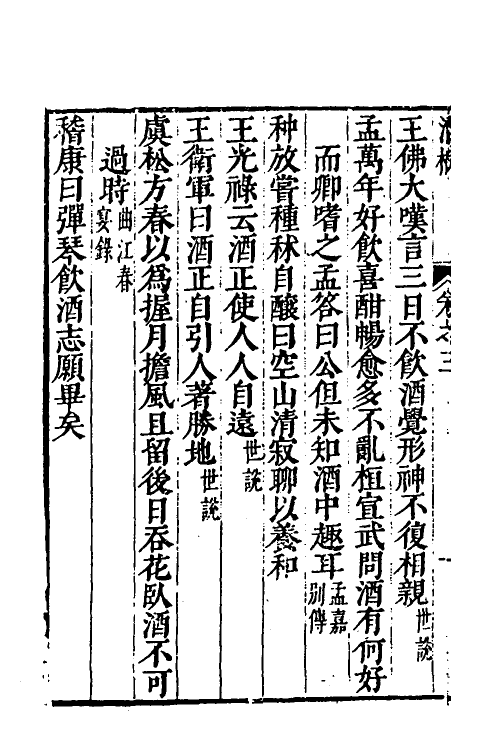 王佛大嘆言三日不飲酒覺形神不復相親世說
孟萬年好飲喜酣暢愈多不亂桓宣武問酒有何好
而卿嗜之孟答曰公但未知酒中趣耳孟嘉別傳
种放嘗種秫自釀曰空山清寂聊以養和
王光祿云酒正使人人自遠世說
王衛軍曰酒正自引人著勝地世說
虞松方春以為握月擔風且留後日吞花臥酒不可
過時曲江春宴錄
嵇康曰彈琴飲酒志願畢矣